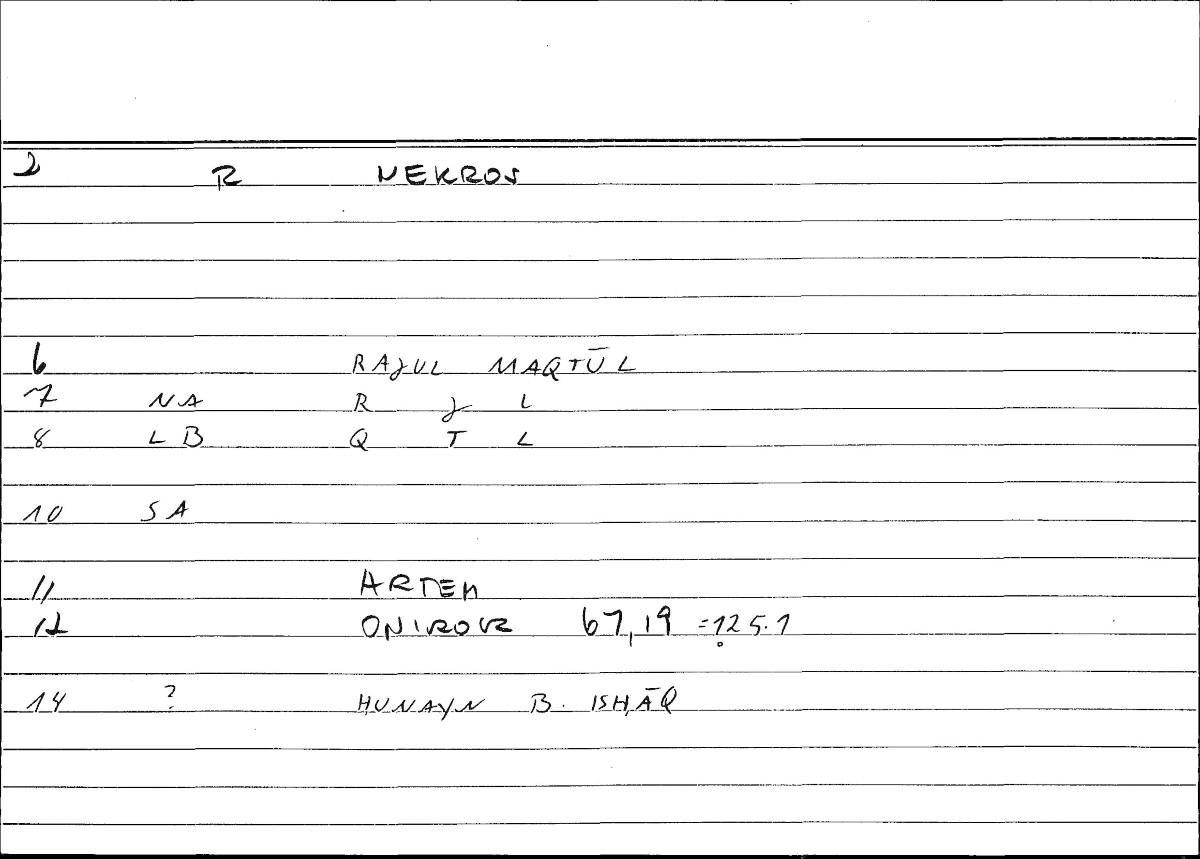 2 R NEKROS
6 RAJUL MAQTŪL
7 NA R J L
8 LB Q T L
10 SA
11 ARTEM
12 ONIROKR 67,19 =125.1
14 ? ḤUNAYN B. ISḤĀQ